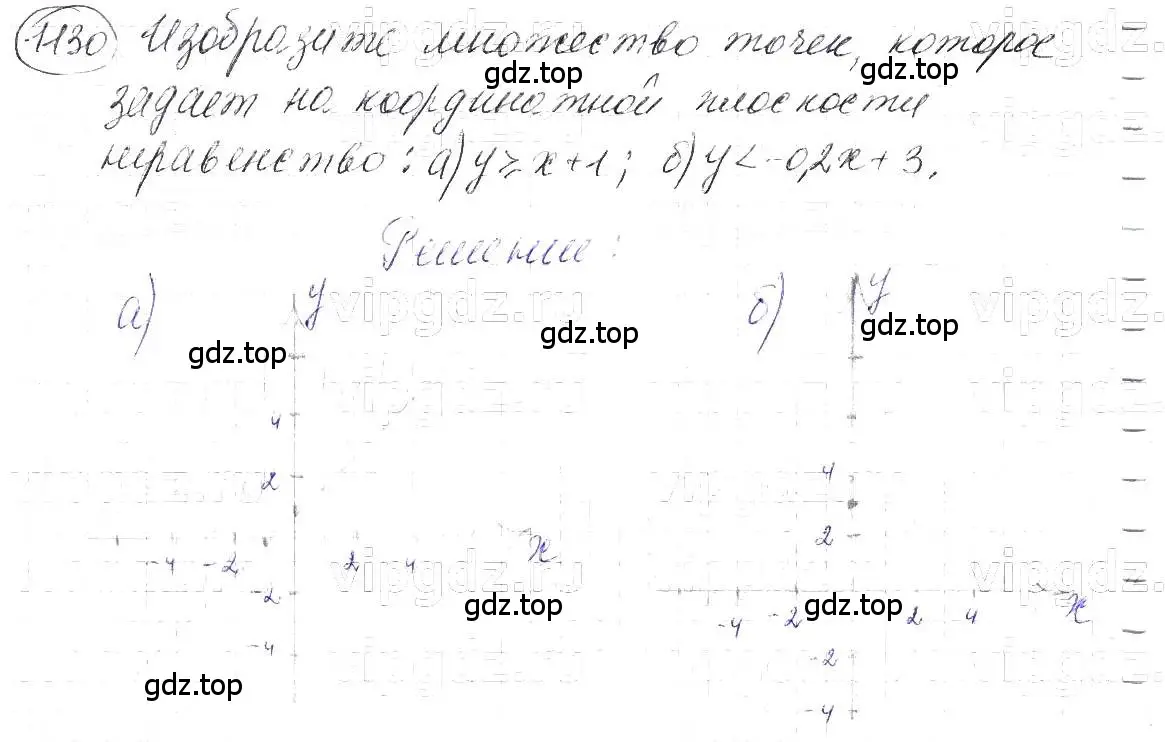 1130 Изобразите множество точек, которое
gdz.top gdz.top
задает на координатной плоскости
неравенство: а) y ⩾ x + 1; б) y < -0,2x + 3.
Решение:
а) y б) y
gdz.top gdz.top gdz.top
4
2 4
2
-4 -2 2 4 x
-2 gdz.top -4 -2 gdz.top 2 4 x
-4 -2
gdz.top -4
vipgdz.ru